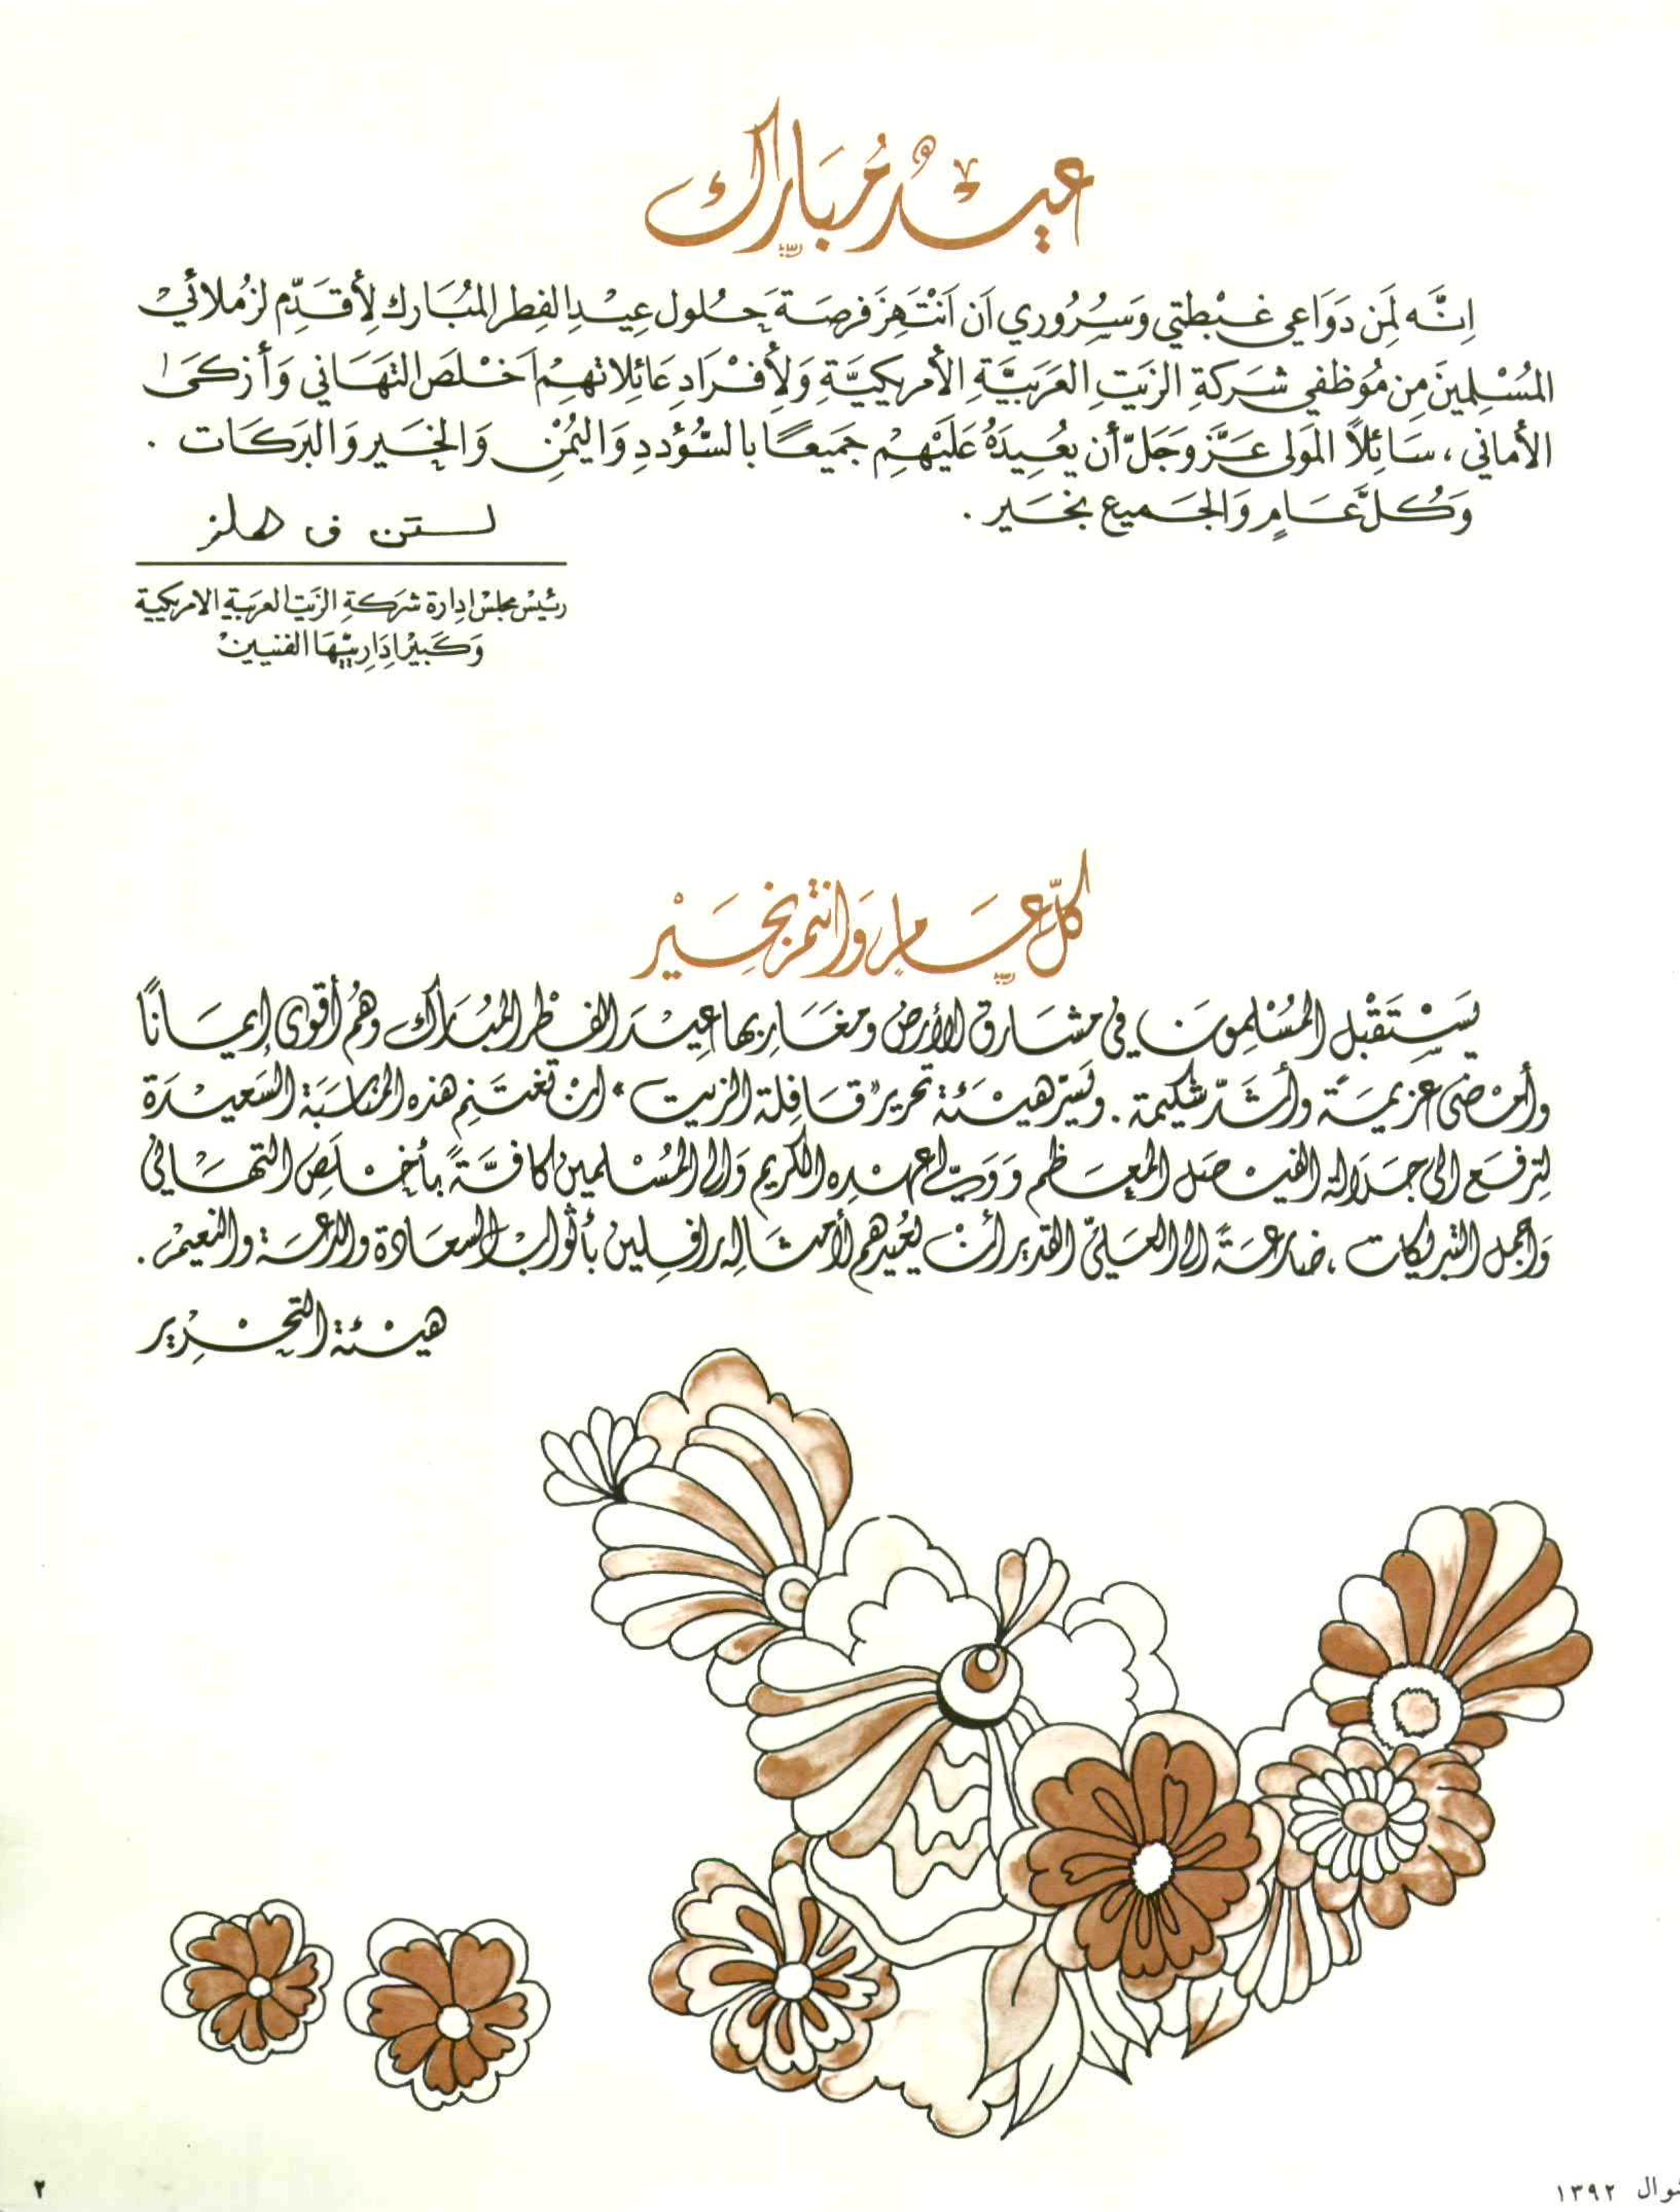 عيدٌ مُبَارَك
إنَّه لمَن دَوَاعي غبْطتي وَسُرُوري اَن اَنْتَهِزَ فرصَة حُلول عِيْدِ الفِطر المُبَارك لأِقَدِّم لزُملائيْ
المُسْلِمينَ مِن مُوظفي شَركةِ الزيَتِ العَرَبيَّةِ الأمريكيَّةِ وَلأِفْرَادِ عَائِلاتهِمْ اَخْلَصَ التهَاني وَأزكىَ
الأماني ، سَائِلاً المَولى عَزَّ وَجَلَّ أن يعُيدَهُ عَلَيْهِمْ جَميعًا بالسُّؤددِ وَاليُمْنِ وَالخَيرِ وَالبَركَات .
وَكُلَّ عَامٍ وَالجَميع بخَير .
لستن ف هلز
رئيْس مجلسْ إدِارة شركَةِ الزيَتِ العرَبيةِ الامريكيية
وَكَبيْر اِدَاريِّيهَا الفنييِنْ
كلّ عَامٍ وَانتم بخَيْر
يَسْتَقْبِل المُسْلِمونَ في مشَارق الأرض ومغَاربها عيْدَ الفطر المُبَارَك وهُم أقوى إيمَانًا
وأمْضى عزيمَة وأشَدّ شكيمة . وتَسرّ هيئَة تحرير "قافِلة الزيت" ان تغتنِم هذه المناسَبَة السَعيْدَة
لترفَع الى جَلالة الفيصَل المعَظم وَوَليّ عهْدِه الكريم وَالى المُسْلمين كافَّةً بأخْلَصِ التهَاني
وَاجمل التبريكات ، ضارعَةً الى العَليّ القدير أنْ يُعيدهم لأمثَالِه رافلِين بأثواب السعَادة والدعَة والنعيمْ .
هيئة التحْرير
شوال ١٣٩٢
٢